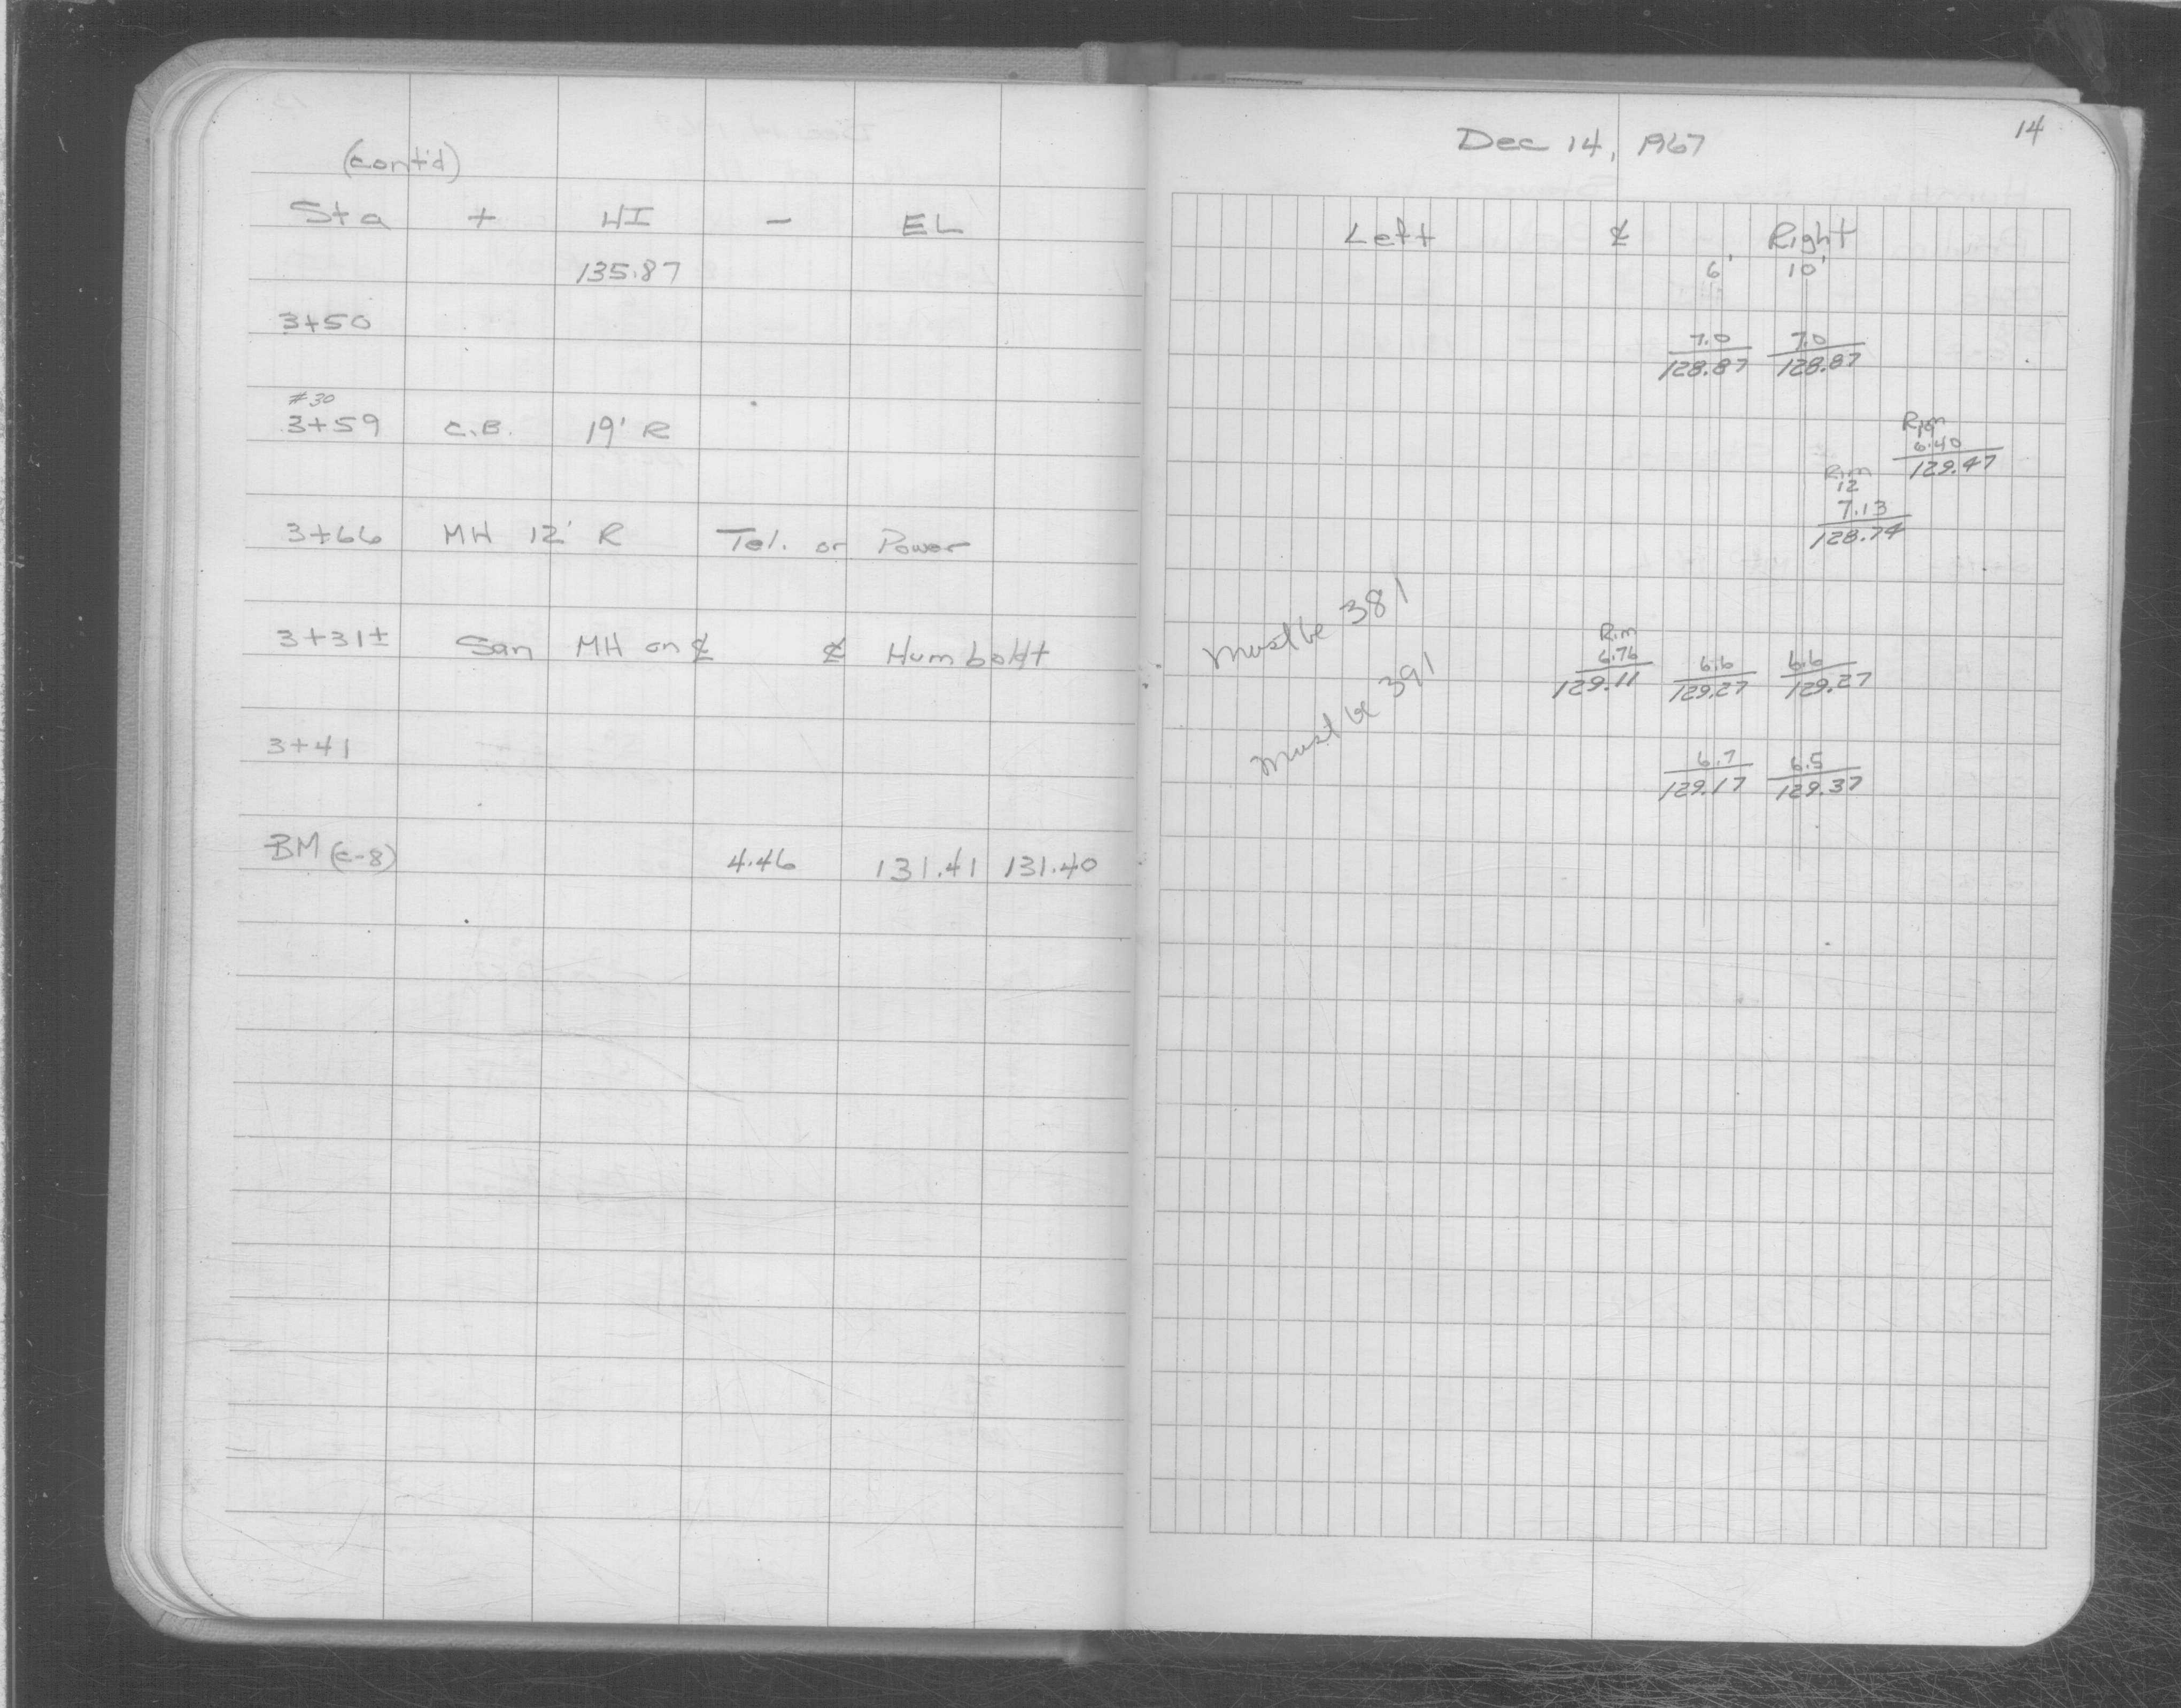 (cont'd)
Sta + HI - EL
135.87
3+50
#30
3+59 C.B. 19' R
3+66 MH 12' R Tel. or Power
3+31± San MH on ℄ ℄ Humboldt
3+41
BM (c-8) 4.46 131.41 131.40
14
Dec 14, 1967
Left ℄ Right
6' 10'
7.0 7.0
128.87 128.87
Rim
19
6.40
129.47
Rim
12
7.13
128.74
Must be 381
Rim
6.76 6.6 6.6
129.11 129.27 129.27
Must be 391
6.7 6.5
129.17 129.37